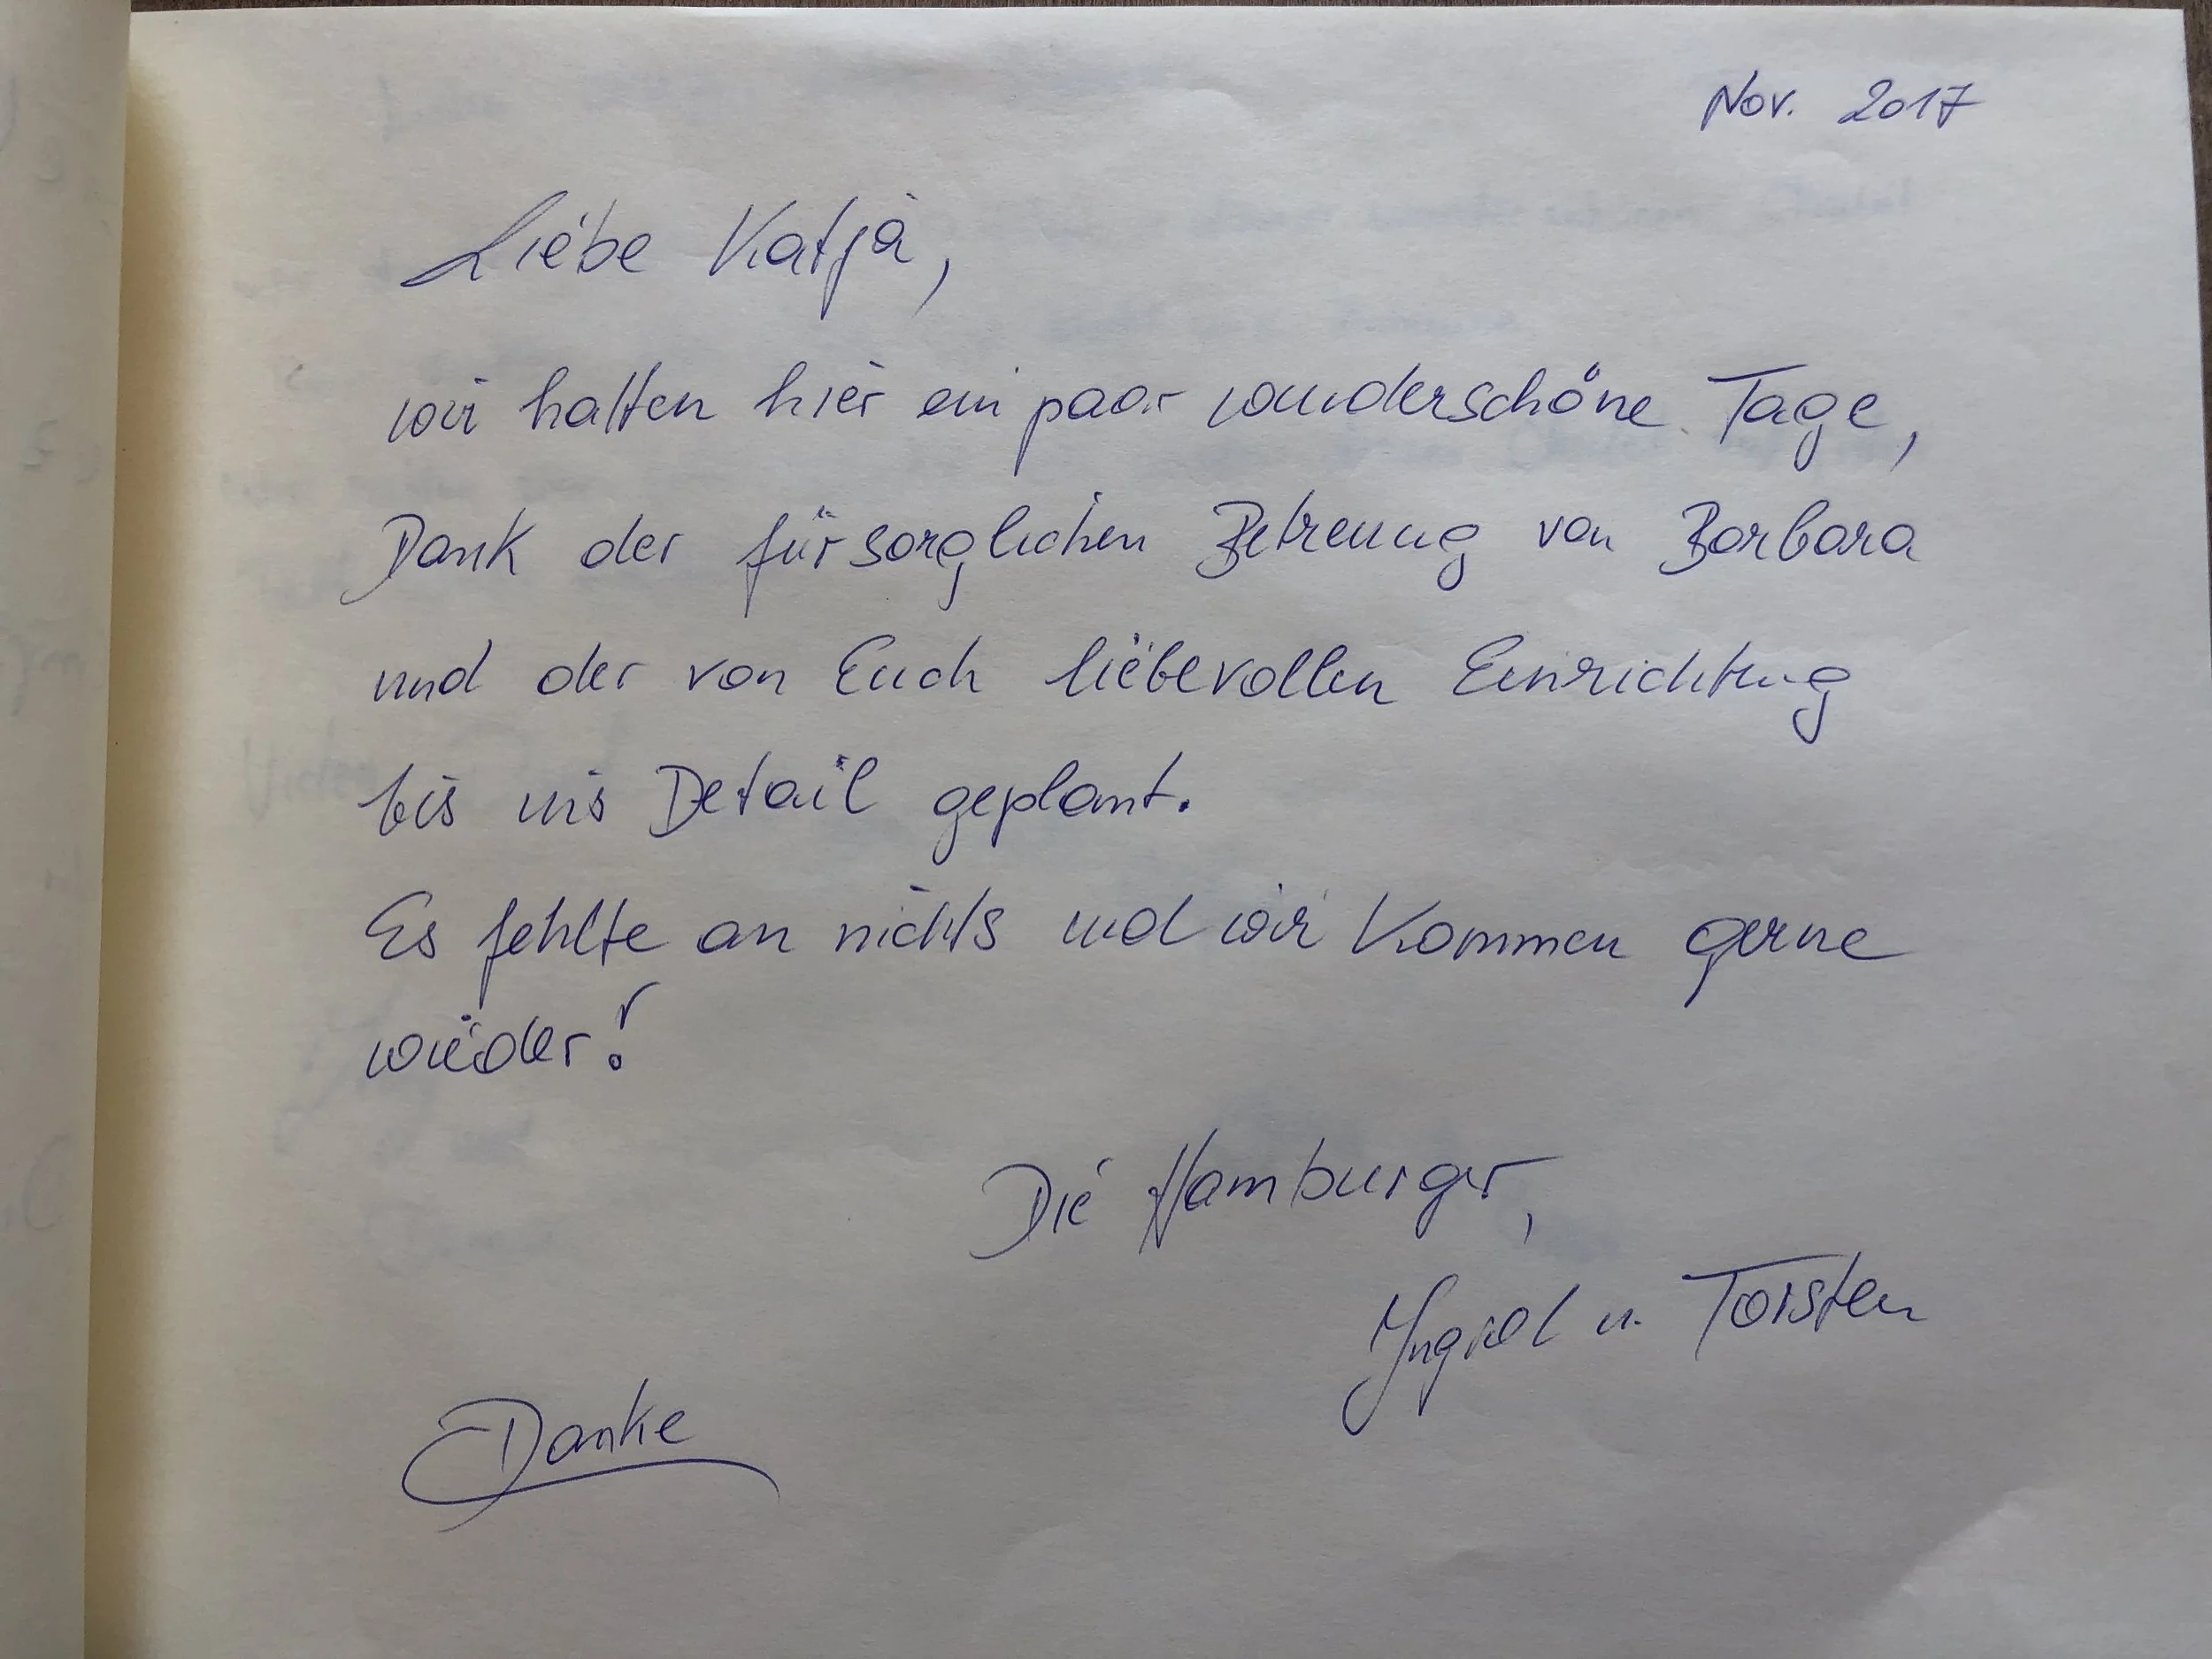 Nov. 2017
Liebe Katja,
wir hatten hier ein paar wunderschöne Tage,
Dank der fürsorglichen Betreuung von Barbara
und der von Euch liebevollen Einrichtung
bis ins Detail geplant.
Es fehlte an nichts und wir kommen gerne
wieder!
Die Hamburger,
Ingrid u. Torsten
Danke